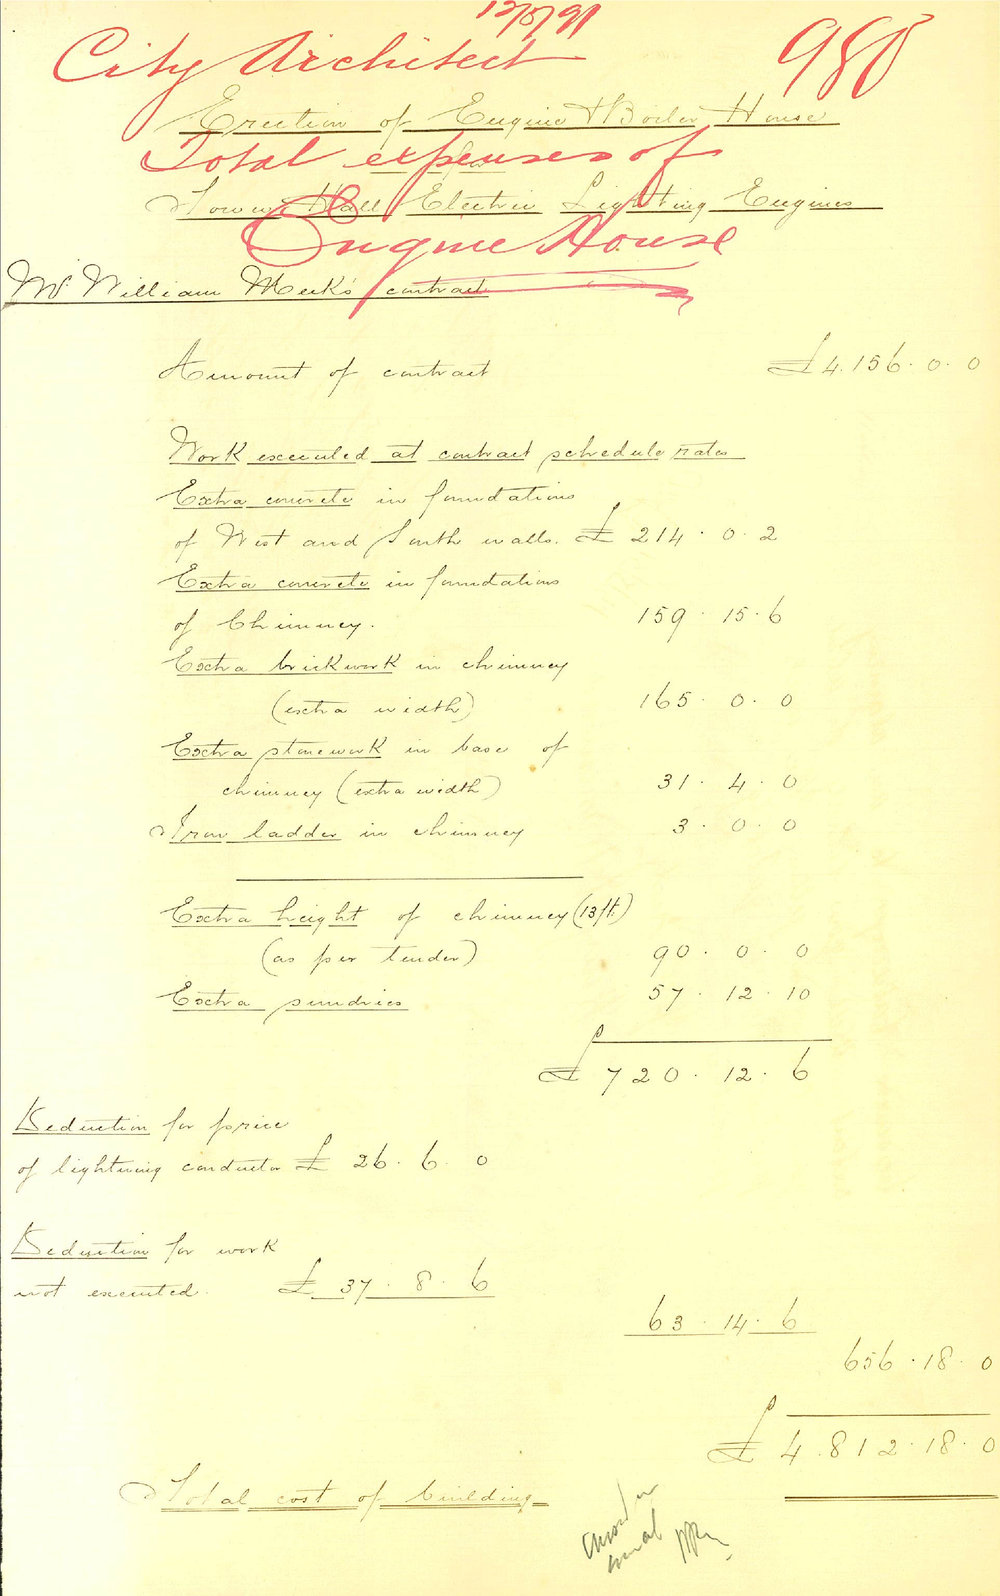 12/5/91
City Architect 980
Erection of Engine & Boiler House
Total expenses of
for
Town Hall Electric Lighting Engines
Engine House
Mr. William Meek's contract
Amount of contract £4.156.0.0
Work executed at contract schedule rates
Extra concrete in foundations
of West and South walls. £ 214.0.2
Extra concrete in foundations
of Chimney. 159.15.6
Extra brickwork in chimney
(extra width) 165.0.0
Extra stonework in base of
chimney (extra width) 31.4.0
Iron ladder in chimney 3.0.0
Extra height of chimney (13ft.)
(as per tender) 90.0.0
Extra sundries 57.12.10
£ 720.12.6
Deduction for price
of lightning conductor £ 26.6.0
Deduction for work
not executed. £ 37.8.6
63.14.6
656.18.0
£ 4.812.18.0
Total cost of building